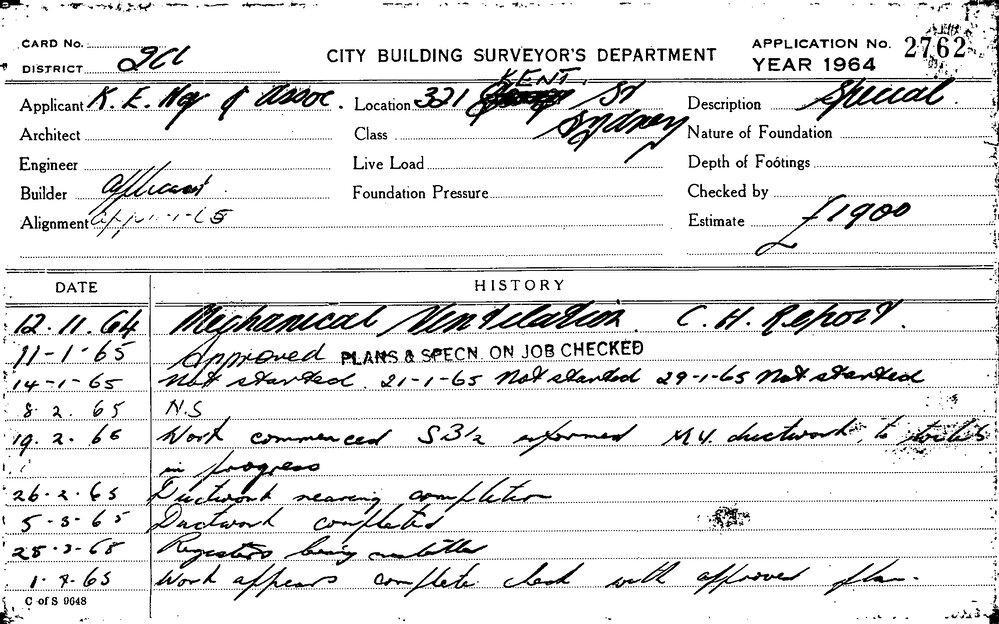 CARD No.
DISTRICT 2CC
CITY BUILDING SURVEYOR'S DEPARTMENT
APPLICATION No. 2762
YEAR 1964
Applicant K. E. Ng & Assoc. Location 321 KENT St Sydney Description Special.
Architect Class Nature of Foundation
Engineer Live Load Depth of Footings
Builder Applicant Foundation Pressure Checked by
Alignment Estimate £1900
DATE HISTORY
12.11.64 Mechanical Ventilation. C. H. Report.
11-1-65 Approved PLANS & SPECN. ON JOB CHECKED
14-1-65 Not started. 21-1-65 Not started 29-1-65 Not started
8.2.65 N.S
19.2.65 Work commenced SB½ informed M.V. ductwork to toilets
in progress
26-2-65 Ductwork nearing completion
5-3-65 Ductwork completed
25-3-65 Registers being installed
1-4-65 Work appears complete check with approved plan.
C of S 9648